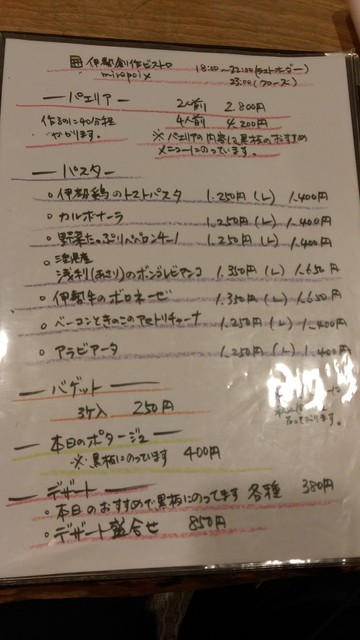 伊那創作ビストロ 18:00〜22:00(ラストオーダー)
miropoix 23:00(クローズ)
パエリア 2人前 2.800円
作るのに40分程 4人前 4.200円
かかります。 ※パエリアの内容は黒板のおすすめ
メニューにのっています。
パスタ
・伊那鶏のトマトパスタ 1.250円(L) 1.400円
・カルボナーラ 1.250円(L) 1.400円
・野菜たっぷりペペロンチーノ 1.250円(L) 1.400円
浅利(あさり)のボンゴレビアンコ 1.350円(L) 1.650円
・伊那牛のボロネーゼ 1.350円(L) 1.650円
・ベーコンときのこのアマトリチャーナ 1.250円(L) 1.400円
・アラビアータ 1.250円(L) 1.400円
バゲット
3ケ入 250円
本日のポタージュ
※黒板にのっています 400円
デザート
・本日のおすすめで黒板にのってます 各種 380円
・デザート盛合せ 850円